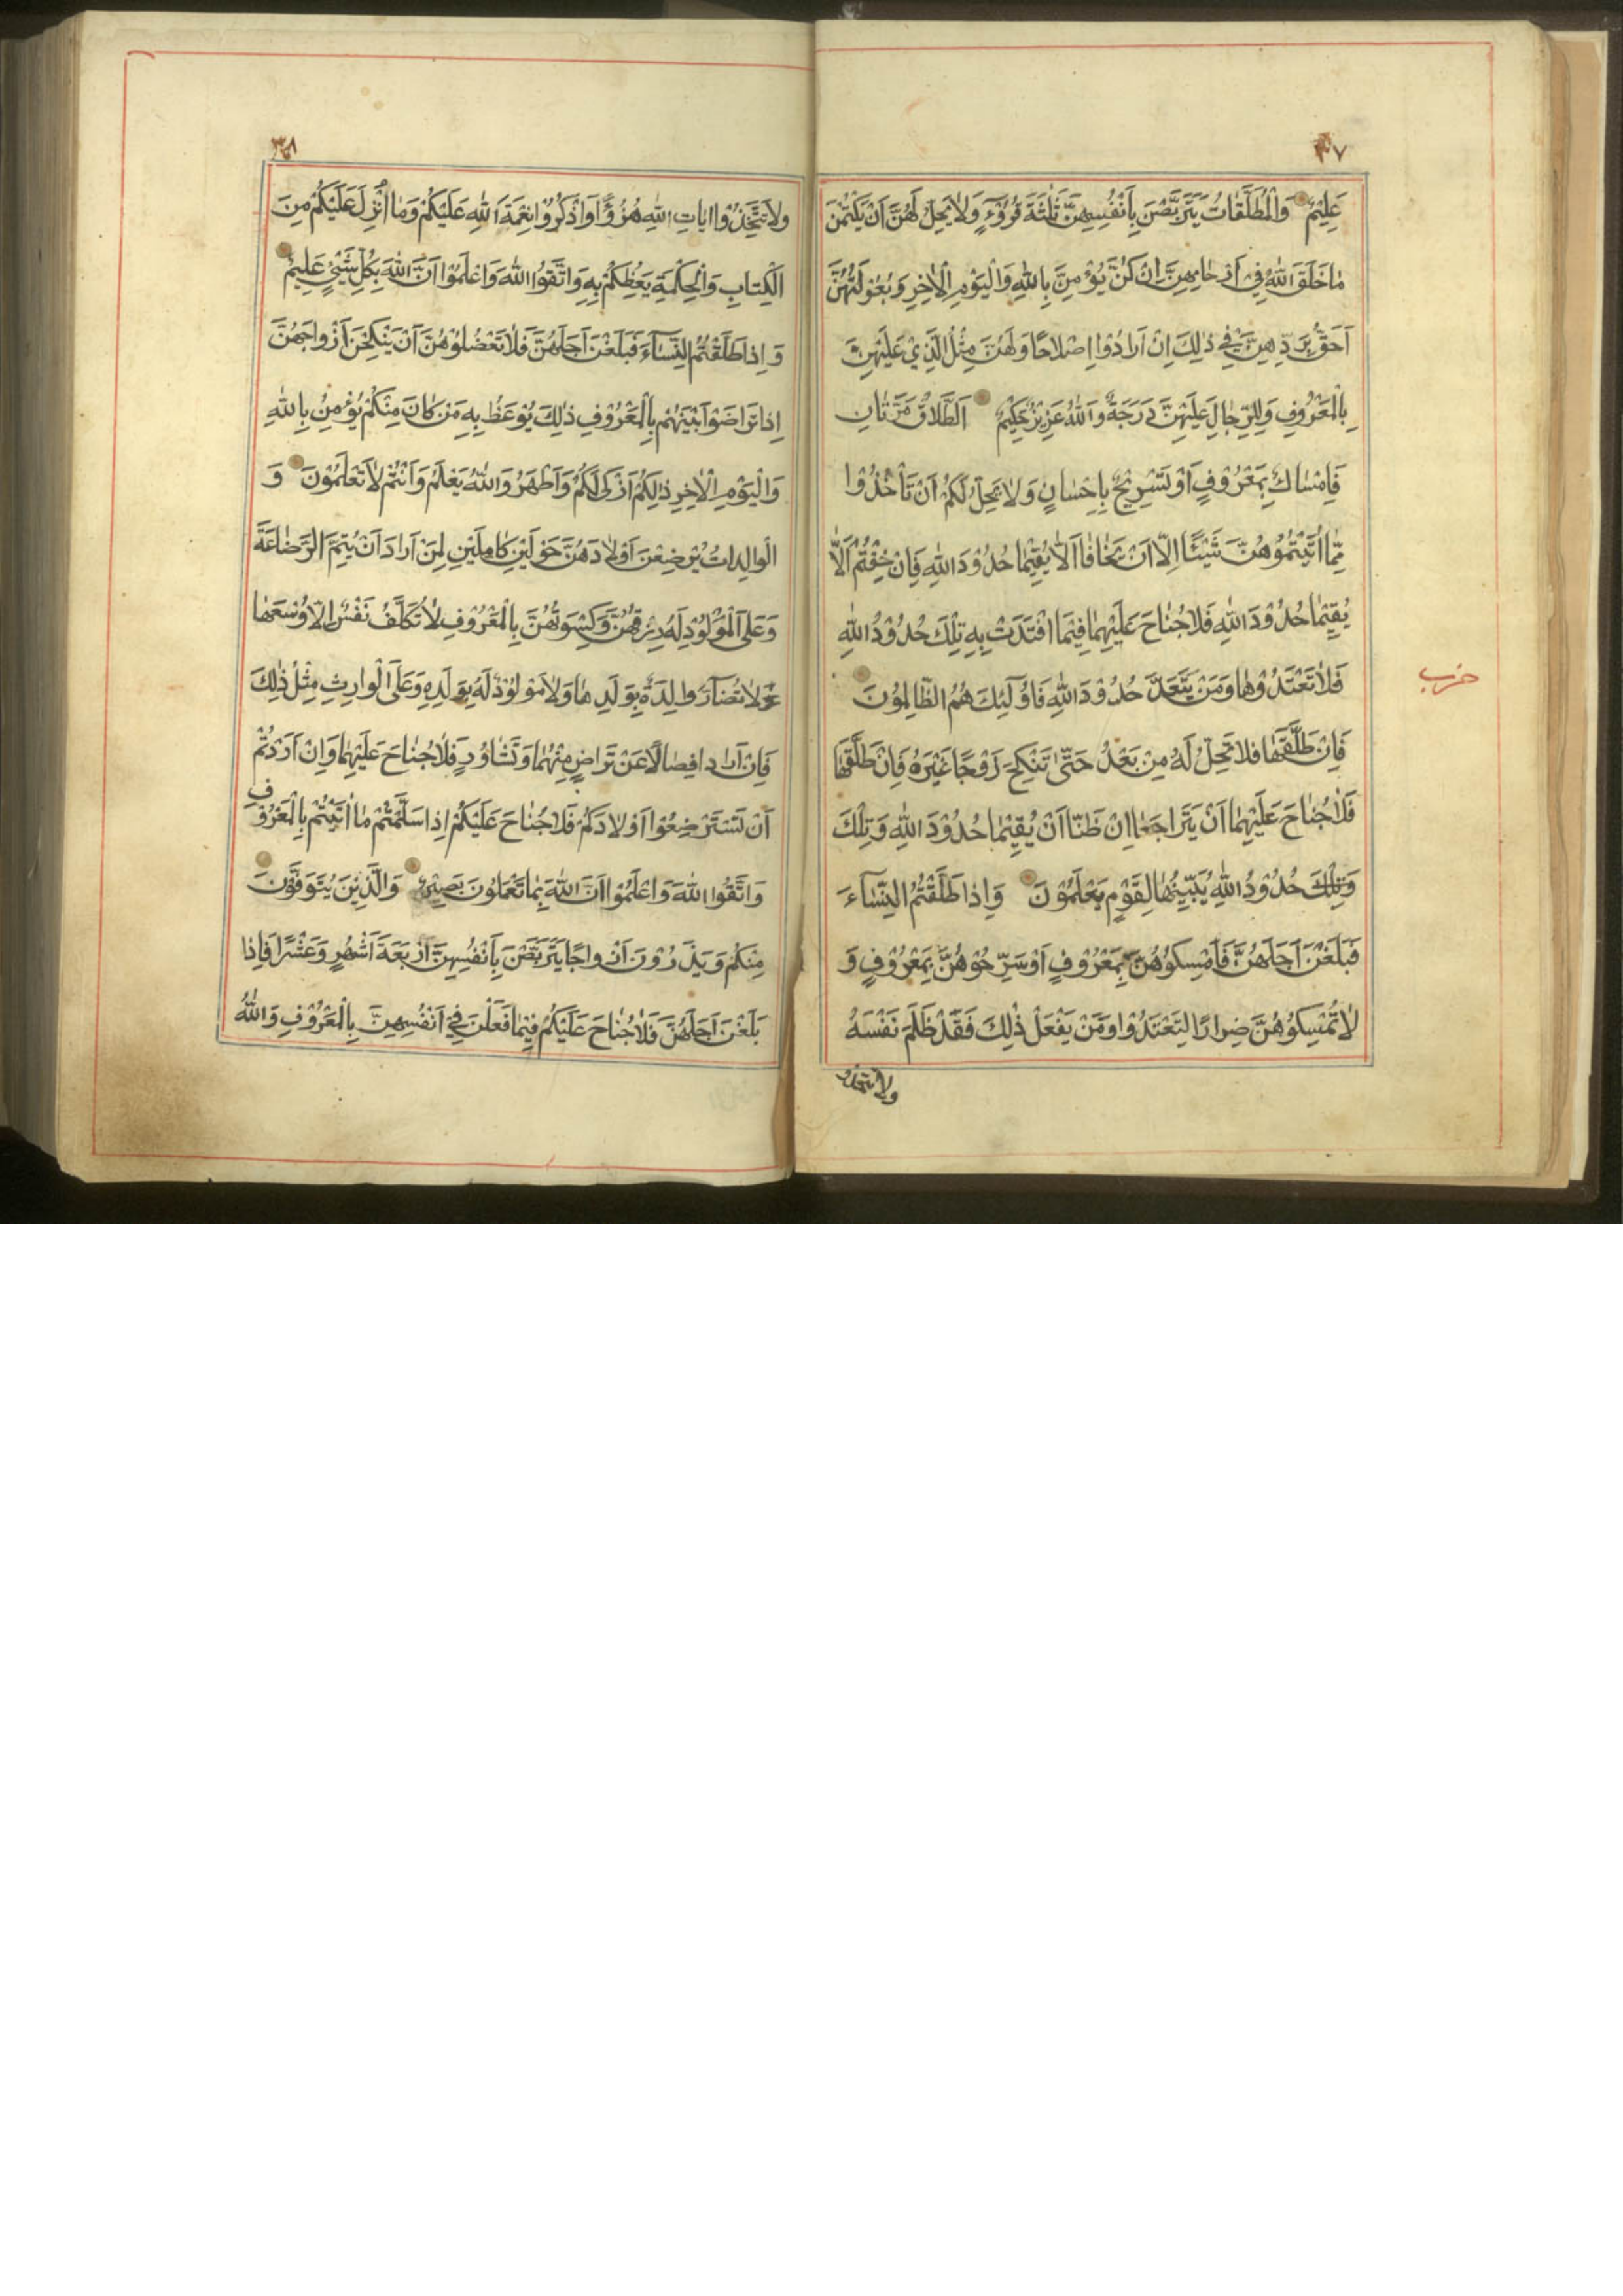 ٣٧
عَلِيمٌ وَالْمُطَلَّقَاتُ يَتَرَبَّصْنَ بِاَنْفُسِهِنَّ ثَلٰثَةَ قُرُوۤءٍ وَلَا يَحِلُّ لَهُنَّ اَنْ يَكْتُمْنَ
مَا خَلَقَ اللّٰهُ فِي اَرْحَامِهِنَّ اِنْ كُنَّ يُؤْمِنَّ بِاللّٰهِ وَالْيَوْمِ الْاٰخِرِ وَبُعُولَتُهُنَّ
اَحَقُّ بِرَدِّهِنَّ فِي ذٰلِكَ اِنْ اَرَادُوْا اِصْلَاحًا وَلَهُنَّ مِثْلُ الَّذِيْ عَلَيْهِنَّ
بِالْمَعْرُوفِ وَلِلرِّجَالِ عَلَيْهِنَّ دَرَجَةٌ وَاللّٰهُ عَزِيْزٌ حَكِيْمٌ اَلطَّلَاقُ مَرَّتَانِ
فَاِمْسَاكٌ بِمَعْرُوْفٍ اَوْ تَسْرِيْحٌ بِاِحْسَانٍ وَلَا يَحِلُّ لَكُمْ اَنْ تَأْخُذُوْا
مِمَّا اٰتَيْتُمُوْهُنَّ شَيْئًا اِلَّا اَنْ يَخَافَا اَلَّا يُقِيْمَا حُدُوْدَ اللّٰهِ فَاِنْ خِفْتُمْ اَلَّا
يُقِيْمَا حُدُوْدَ اللّٰهِ فَلَا جُنَاحَ عَلَيْهِمَا فِيْمَا افْتَدَتْ بِهِ تِلْكَ حُدُوْدُ اللّٰهِ
فَلَا تَعْتَدُوْهَا وَمَنْ يَتَعَدَّ حُدُوْدَ اللّٰهِ فَاُولٰۤئِكَ هُمُ الظَّالِمُوْنَ
حزب
فَاِنْ طَلَّقَهَا فَلَا تَحِلُّ لَهُ مِنْ بَعْدُ حَتّٰى تَنْكِحَ زَوْجًا غَيْرَهُ فَاِنْ طَلَّقَهَا
فَلَا جُنَاحَ عَلَيْهِمَا اَنْ يَتَرَاجَعَا اِنْ ظَنَّا اَنْ يُقِيْمَا حُدُوْدَ اللّٰهِ وَتِلْكَ
وَتِلْكَ حُدُوْدُ اللّٰهِ يُبَيِّنُهَا لِقَوْمٍ يَعْلَمُوْنَ وَاِذَا طَلَّقْتُمُ النِّسَاۤءَ
فَبَلَغْنَ اَجَلَهُنَّ فَاَمْسِكُوْهُنَّ بِمَعْرُوْفٍ اَوْ سَرِّحُوْهُنَّ بِمَعْرُوْفٍ وَ
لَا تُمْسِكُوْهُنَّ ضِرَارًا لِتَعْتَدُوْا وَمَنْ يَفْعَلْ ذٰلِكَ فَقَدْ ظَلَمَ نَفْسَهُ
ولا تتخذوا
٣٨
وَلَا تَتَّخِذُوْا اٰيَاتِ اللّٰهِ هُزُوًا وَاذْكُرُوْا نِعْمَةَ اللّٰهِ عَلَيْكُمْ وَمَا اَنْزَلَ عَلَيْكُمْ مِنَ
الْكِتَابِ وَالْحِكْمَةِ يَعِظُكُمْ بِهِ وَاتَّقُوا اللّٰهَ وَاعْلَمُوْا اَنَّ اللّٰهَ بِكُلِّ شَيْءٍ عَلِيْمٌ
وَاِذَا طَلَّقْتُمُ النِّسَاۤءَ فَبَلَغْنَ اَجَلَهُنَّ فَلَا تَعْضُلُوْهُنَّ اَنْ يَنْكِحْنَ اَزْوَاجَهُنَّ
اِذَا تَرَاضَوْا بَيْنَهُمْ بِالْمَعْرُوْفِ ذٰلِكَ يُوْعَظُ بِهِ مَنْ كَانَ مِنْكُمْ يُؤْمِنُ بِاللّٰهِ
وَالْيَوْمِ الْاٰخِرِ ذٰلِكُمْ اَزْكٰى لَكُمْ وَاَطْهَرُ وَاللّٰهُ يَعْلَمُ وَاَنْتُمْ لَا تَعْلَمُوْنَ وَ
الْوَالِدَاتُ يُرْضِعْنَ اَوْلَادَهُنَّ حَوْلَيْنِ كَامِلَيْنِ لِمَنْ اَرَادَ اَنْ يُتِمَّ الرَّضَاعَةَ
وَعَلَى الْمَوْلُوْدِ لَهُ رِزْقُهُنَّ وَكِسْوَتُهُنَّ بِالْمَعْرُوْفِ لَا تُكَلَّفُ نَفْسٌ اِلَّا وُسْعَهَا
لَا تُضَاۤرَّ وَالِدَةٌ بِوَلَدِهَا وَلَا مَوْلُوْدٌ لَهُ بِوَلَدِهِ وَعَلَى الْوَارِثِ مِثْلُ ذٰلِكَ
فَاِنْ اَرَادَا فِصَالًا عَنْ تَرَاضٍ مِنْهُمَا وَتَشَاوُرٍ فَلَا جُنَاحَ عَلَيْهِمَا وَاِنْ اَرَدْتُمْ
اَنْ تَسْتَرْضِعُوْا اَوْلَادَكُمْ فَلَا جُنَاحَ عَلَيْكُمْ اِذَا سَلَّمْتُمْ مَا اٰتَيْتُمْ بِالْمَعْرُوْفِ
وَاتَّقُوا اللّٰهَ وَاعْلَمُوْا اَنَّ اللّٰهَ بِمَا تَعْمَلُوْنَ بَصِيْرٌ وَالَّذِيْنَ يُتَوَفَّوْنَ
مِنْكُمْ وَيَذَرُوْنَ اَزْوَاجًا يَتَرَبَّصْنَ بِاَنْفُسِهِنَّ اَرْبَعَةَ اَشْهُرٍ وَعَشْرًا فَاِذَا
بَلَغْنَ اَجَلَهُنَّ فَلَا جُنَاحَ عَلَيْكُمْ فِيْمَا فَعَلْنَ فِي اَنْفُسِهِنَّ بِالْمَعْرُوْفِ وَاللّٰهُ